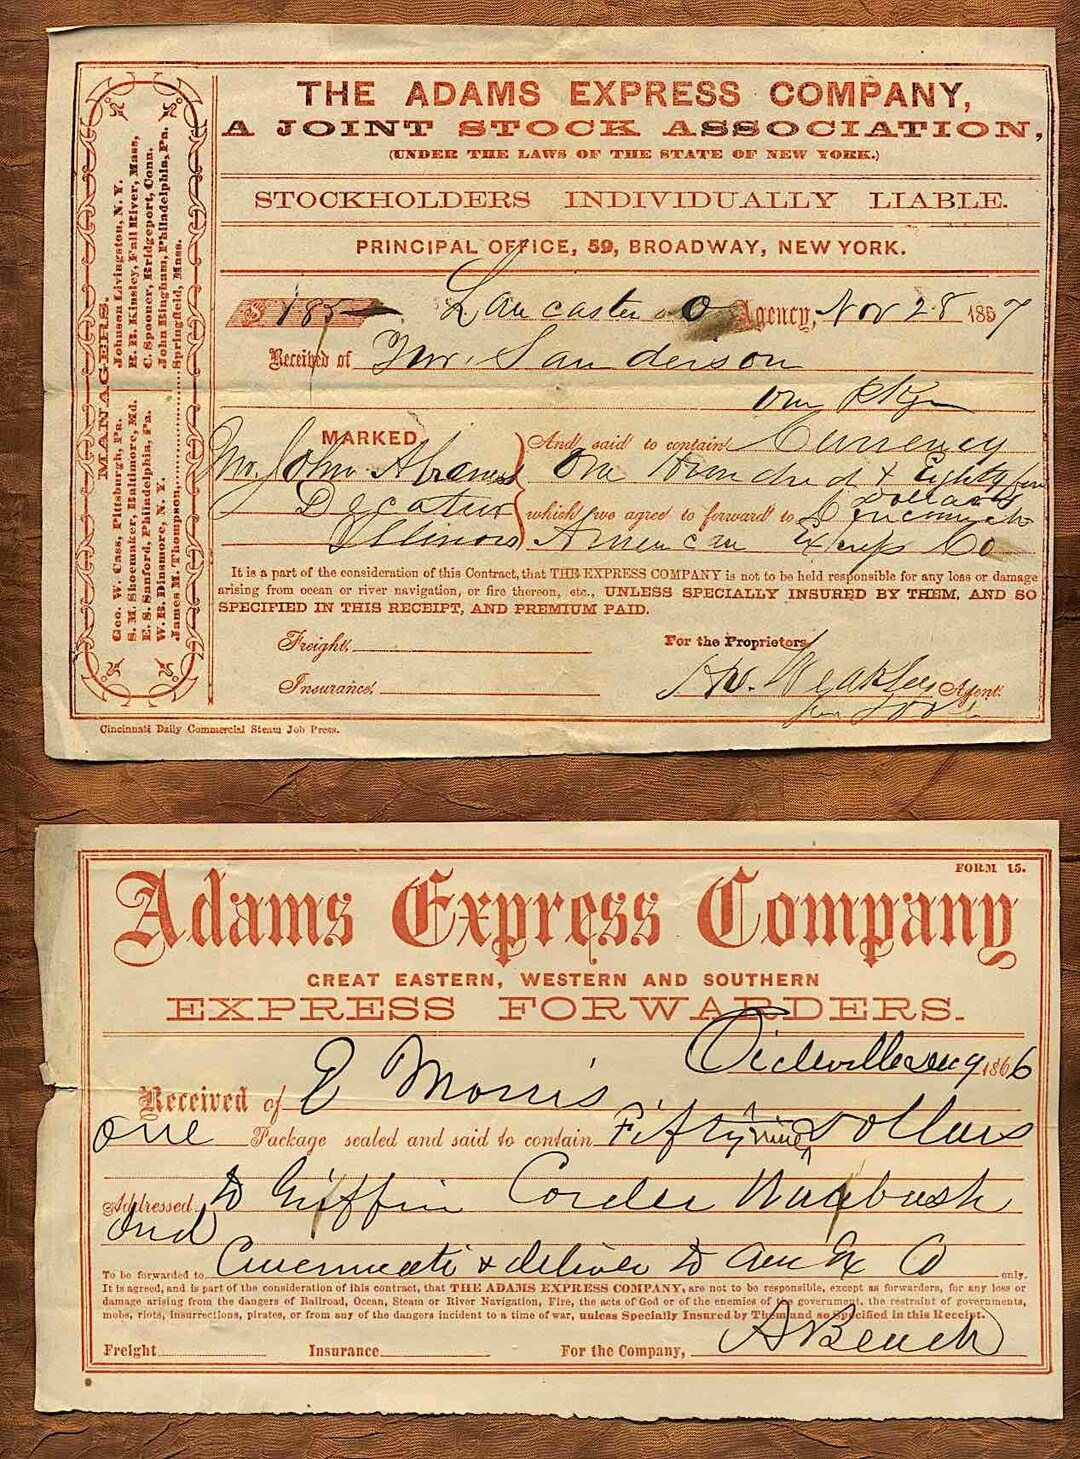 THE ADAMS EXPRESS COMPANY,
A JOINT STOCK ASSOCIATION,
(UNDER THE LAWS OF THE STATE OF NEW YORK.)
STOCKHOLDERS INDIVIDUALLY LIABLE.
PRINCIPAL OFFICE, 59, BROADWAY, NEW YORK.
MANAGERS.
Johnson Livingston, N. Y.
R. B. Kinsley, Fall River, Mass,
C. Spooner, Bridgeport, Conn.
John Bingham, Philadelphia, Pa.
Springfield, Mass.
Geo. W. Cass, Pittsburgh, Pa.
S. M. Shoemaker, Baltimore, Md.
E. S. Sanford, Philadelphia, Pa.
W. B. Dinsmore, N. Y.
James M. Thompson,
$ 185 Lancaster O Agency, Nov 28 1857
Received of Mr. Sanderson
One Pkge
MARKED And said to contain Currency
Mr. John Abrams One Hundred & Eighty five
Dollars
Decatur which we agree to forward to
Illinois American Express Co
It is a part of the consideration of this Contract, that THE EXPRESS COMPANY is not to be held responsible for any loss or damage
arising from ocean or river navigation, or fire thereon, etc., UNLESS SPECIALLY INSURED BY THEM, AND SO
SPECIFIED IN THIS RECEIPT, AND PREMIUM PAID.
Freight, For the Proprietors
Insurance, Agent.
Cincinnati Daily Commercial Steam Job Press.
FORM 15.
Adams Express Company
GREAT EASTERN, WESTERN AND SOUTHERN
EXPRESS FORWARDERS.
Circleville Dec 9 1866
Received of E Morris
One Package sealed and said to contain Fifty nine Dollars
Addressed to Griffin Corder Waubash
Ind
To be forwarded to Cincinnati & deliver to Am Ex Co only.
It is agreed, and is part of the consideration of this contract, that THE ADAMS EXPRESS COMPANY, are not to be responsible, except as forwarders, for any loss or
damage arising from the dangers of Railroad, Ocean, Steam or River Navigation, Fire, the acts of God or of the enemies of the government, the restraint of governments,
mobs, riots, insurrections, pirates, or from any of the dangers incident to a time of war, unless Specially Insured by Them and so Specified in this Receipt.
Freight Insurance For the Company,